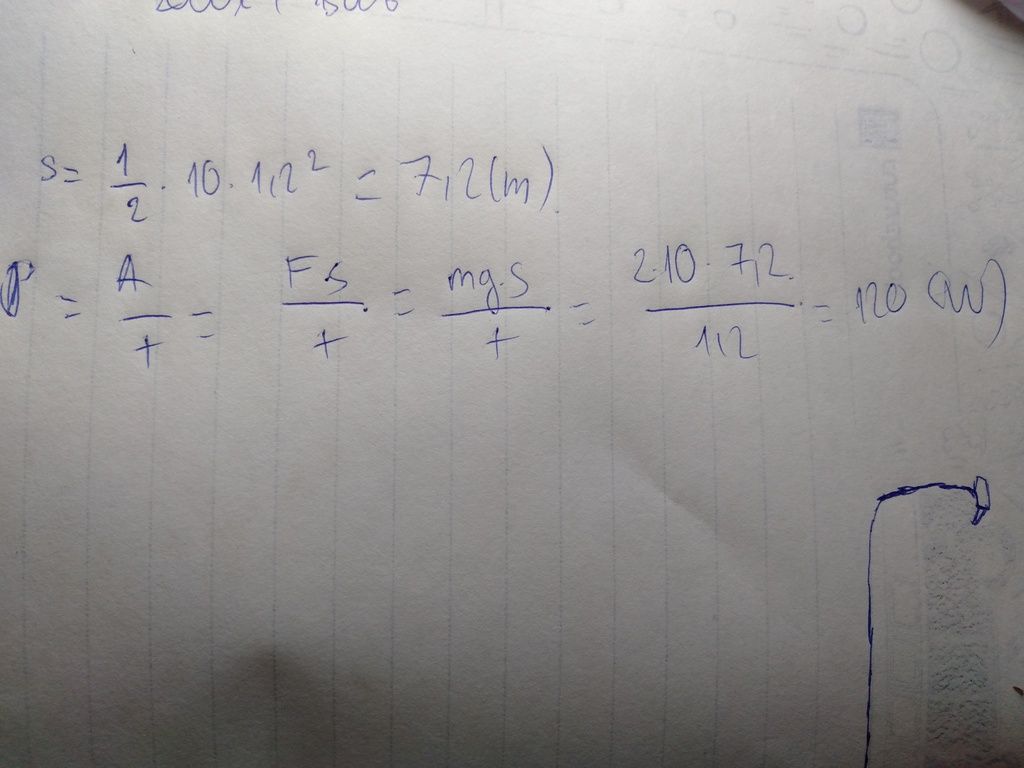 s = 1/2 . 10 . 1,2² = 7,2 (m).
P = A/t = F.s/t = mg.s/t = 2.10.7,2/1,2 = 120 (W)